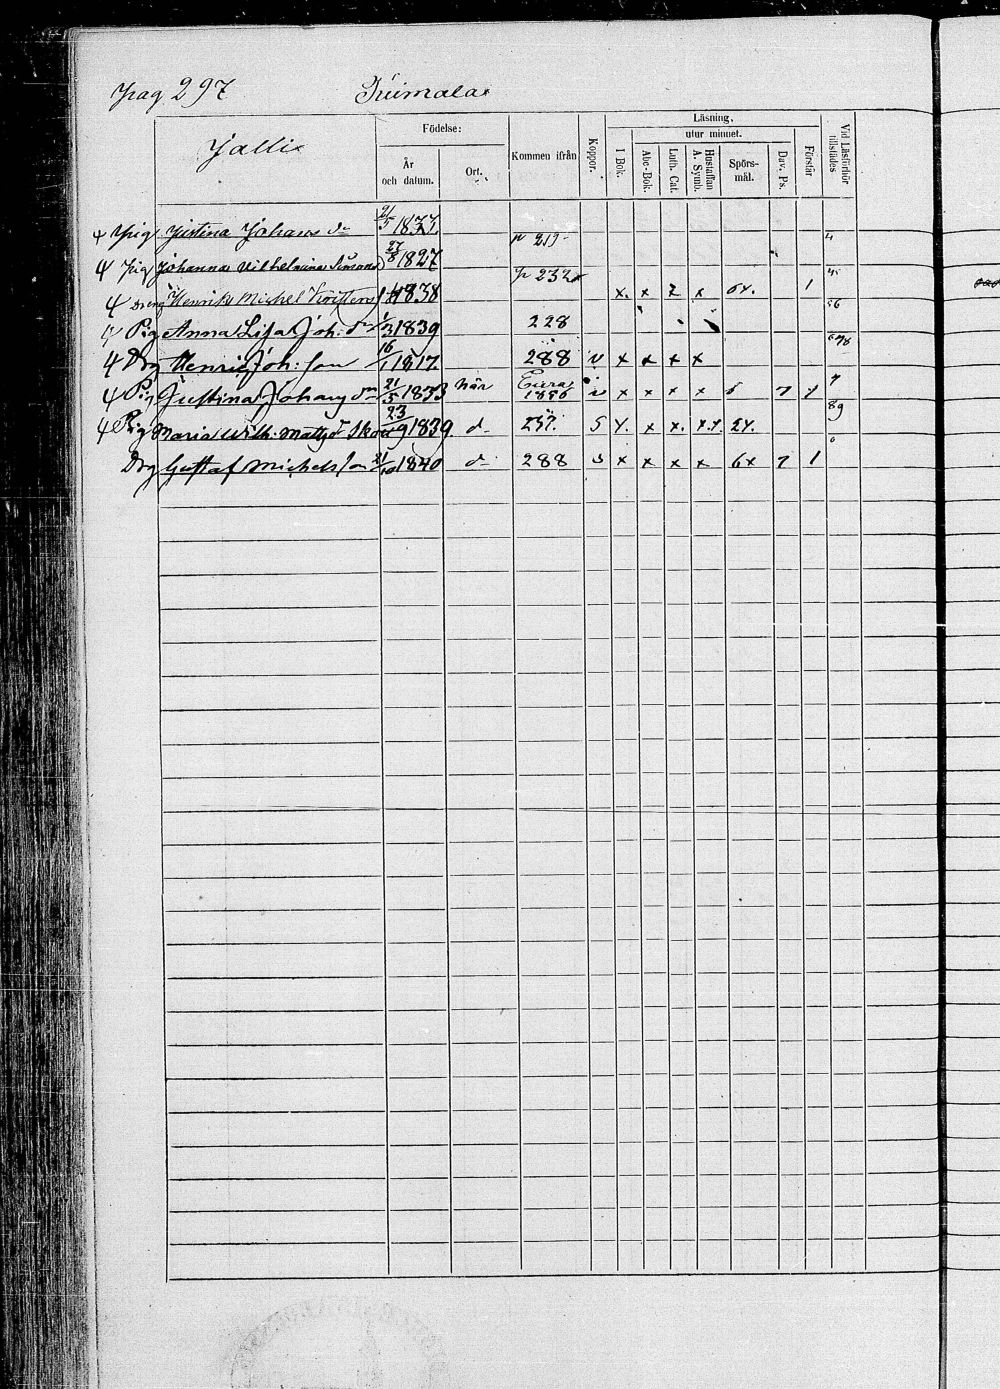 pag 297 Tuimala
Jalli
Födelse:
År och datum.
Ort.
Kommen ifrån
Koppor.
Läsning,
utur minnet.
I Bok.
Abc-Bok.
Luth. Cat.
Hustaflan A. Symb.
Spörs-mål.
Dav. Ps.
Förstår
Vid Läsförhör tillstädes
Pig Justina Johans dr 21/5 1833.
Pig Johanna Vilhelmina Simons 27/8 1827 p 219
Dreng Henrik Michel 1838 p 232 x. x 7 x 6x. 1
Pig Anna Lisa Joh: dr 1/3 1839 228
Drg Henric Joh: son 16/1 1817. 288 v x x x x
Pig Justina Johans dr 21/5 1833 här Eura 1856 v x x x x 6 7 1
Pig Maria Wilh. Matts dr 23/9 1839. d- 257. S x x. 2x.
Drg Gustaf Michels son 21/10 1840 d- 288 s x x x x 6x 7 1